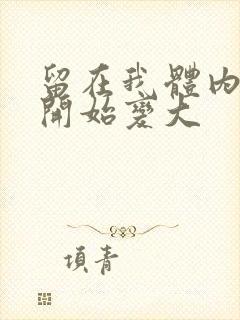 留在我體內
開始變大
項青